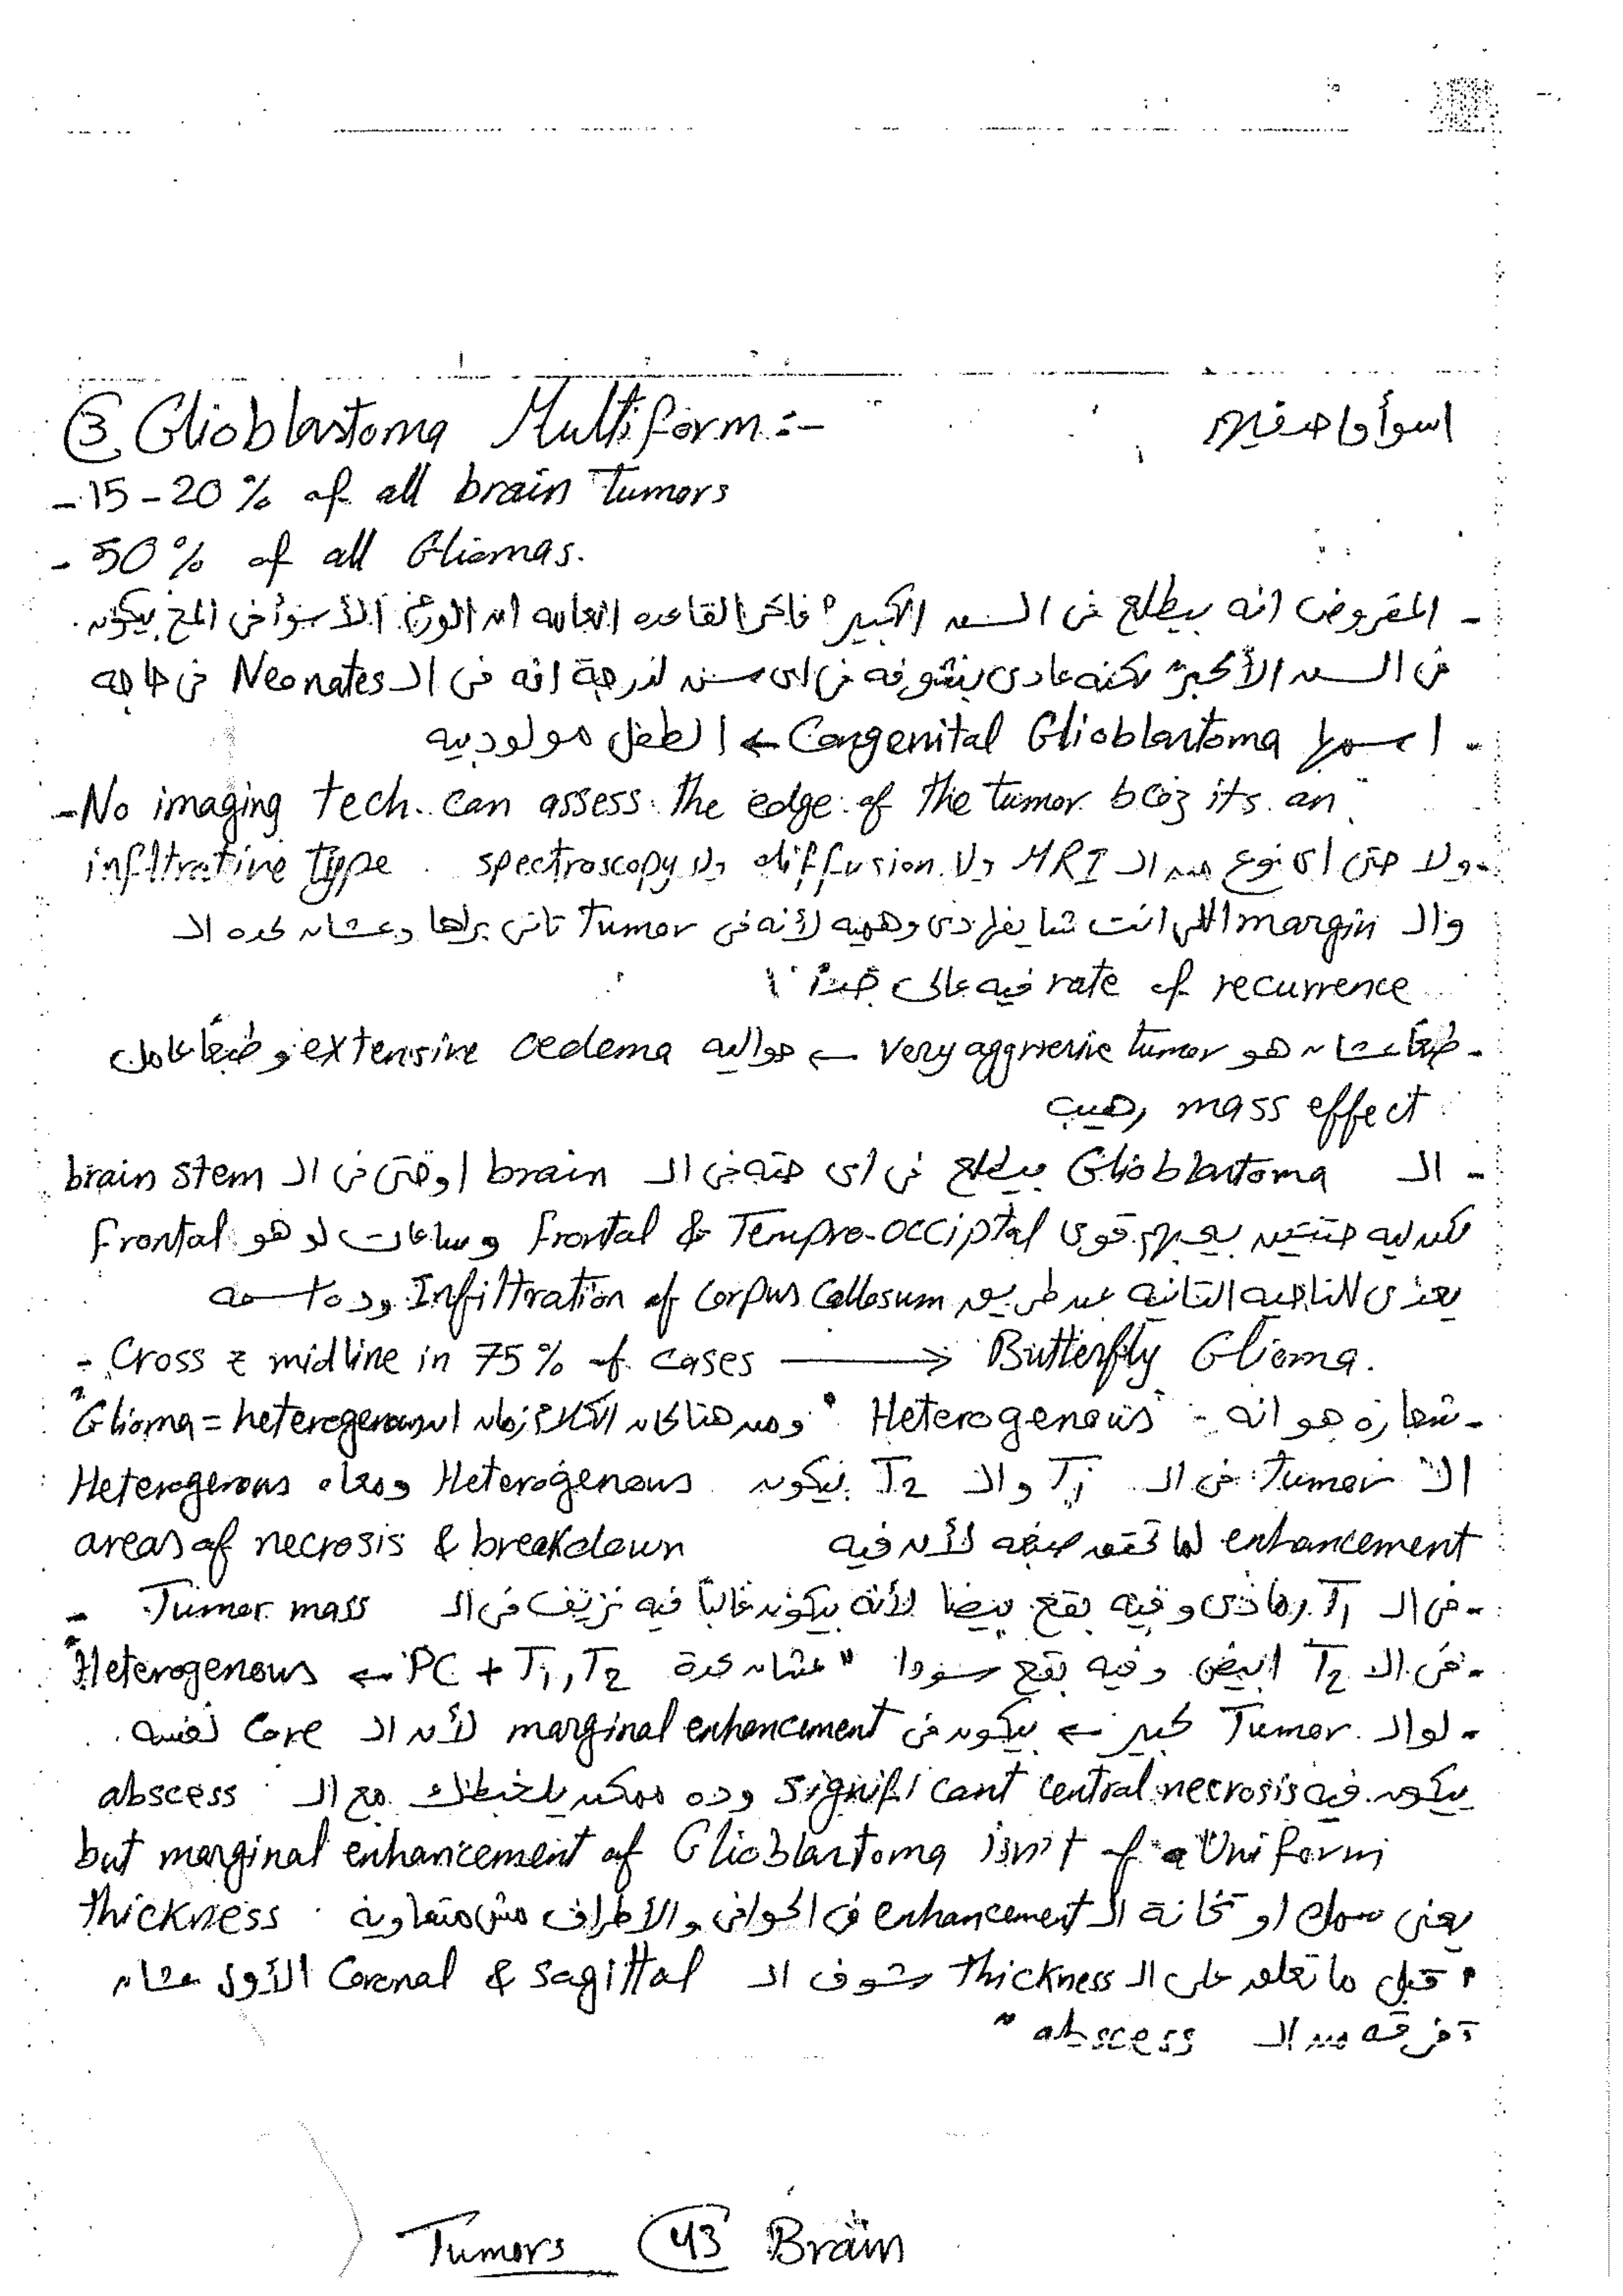 ③ Glioblastoma Multiform :-
اسوأ واحد فيهم
- 15-20% of all brain Tumors
- 50% of all Gliomas.
- المفروض انه بيطلع فى السن الكبير " فاكر القاعده العامه ان الورم الأسوأ فى المخ بيكون
فى السن الأكبر " لكنه عادى بنشوفه فى اى سن لدرجة انه فى الـ Neonates فى حاجه
- اسمها Congenital Glioblastoma ← الطفل مولود بيه
- No imaging tech. can assess the edge of the tumor bcoz its an
infiltrative type . ولا حتى اى نوع من الـ MRI ولا diffusion ولا spectroscopy
والـ margin اللى انت شايفها دى وهميه لأنه فى Tumor تانى براها وعشان كده الـ
rate of recurrence فيه عالى جداً !
- طبعاً عشان هو very aggressive tumor ← حواليه extensive oedema وطبعاً عامل
mass effect رهيب
- الـ Glioblastoma بيطلع فى اى حته فى الـ brain اوحتى فى الـ brain stem
لكن ليه حتتين بيحبهم قوى frontal & Tempro-occiptal وساعات لو هو frontal
يعدى للناحيه التانيه عن طريق Infiltration of Corpus Callosum وده اسمه
- Cross z midline in 75% of cases ⟶ Butterfly Glioma.
- شعاره هو انه :- Heterogenous " ومن هنا كان الكلام زمان ان Glioma = heterogenous "
الـ Tumor فى الـ T1 والـ T2 بيكون Heterogenous ومعاه Heterogenous
enhancement لما تحقن صبغه لأن فيه areas of necrosis & breakdown
- فى الـ T1 رمادى وفيه بقع بيضا لأنه بيكون غالباً فيه نزيف فى الـ Tumor mass -
- فى الـ T2 ابيض وفيه بقع سودا " عشان كدة PC + T1, T2 ← Heterogenous "
- لو الـ Tumor كبير ← بيكون فى marginal enhancement لأن الـ Core نفسه
بيكون فيه significant central necrosis وده ممكن يلخبطك مع الـ abscess
but marginal enhancement of Glioblastoma isn't of a Uniform
thickness . يعنى سمك او تخانة الـ enhancement فى الحوافى والأطراف مش متساوية
" قبل ما تعلق على الـ thickness شوف الـ Coronal & Sagittal الأول عشان
تفرقه من الـ abscess "
Tumors 43 Brain